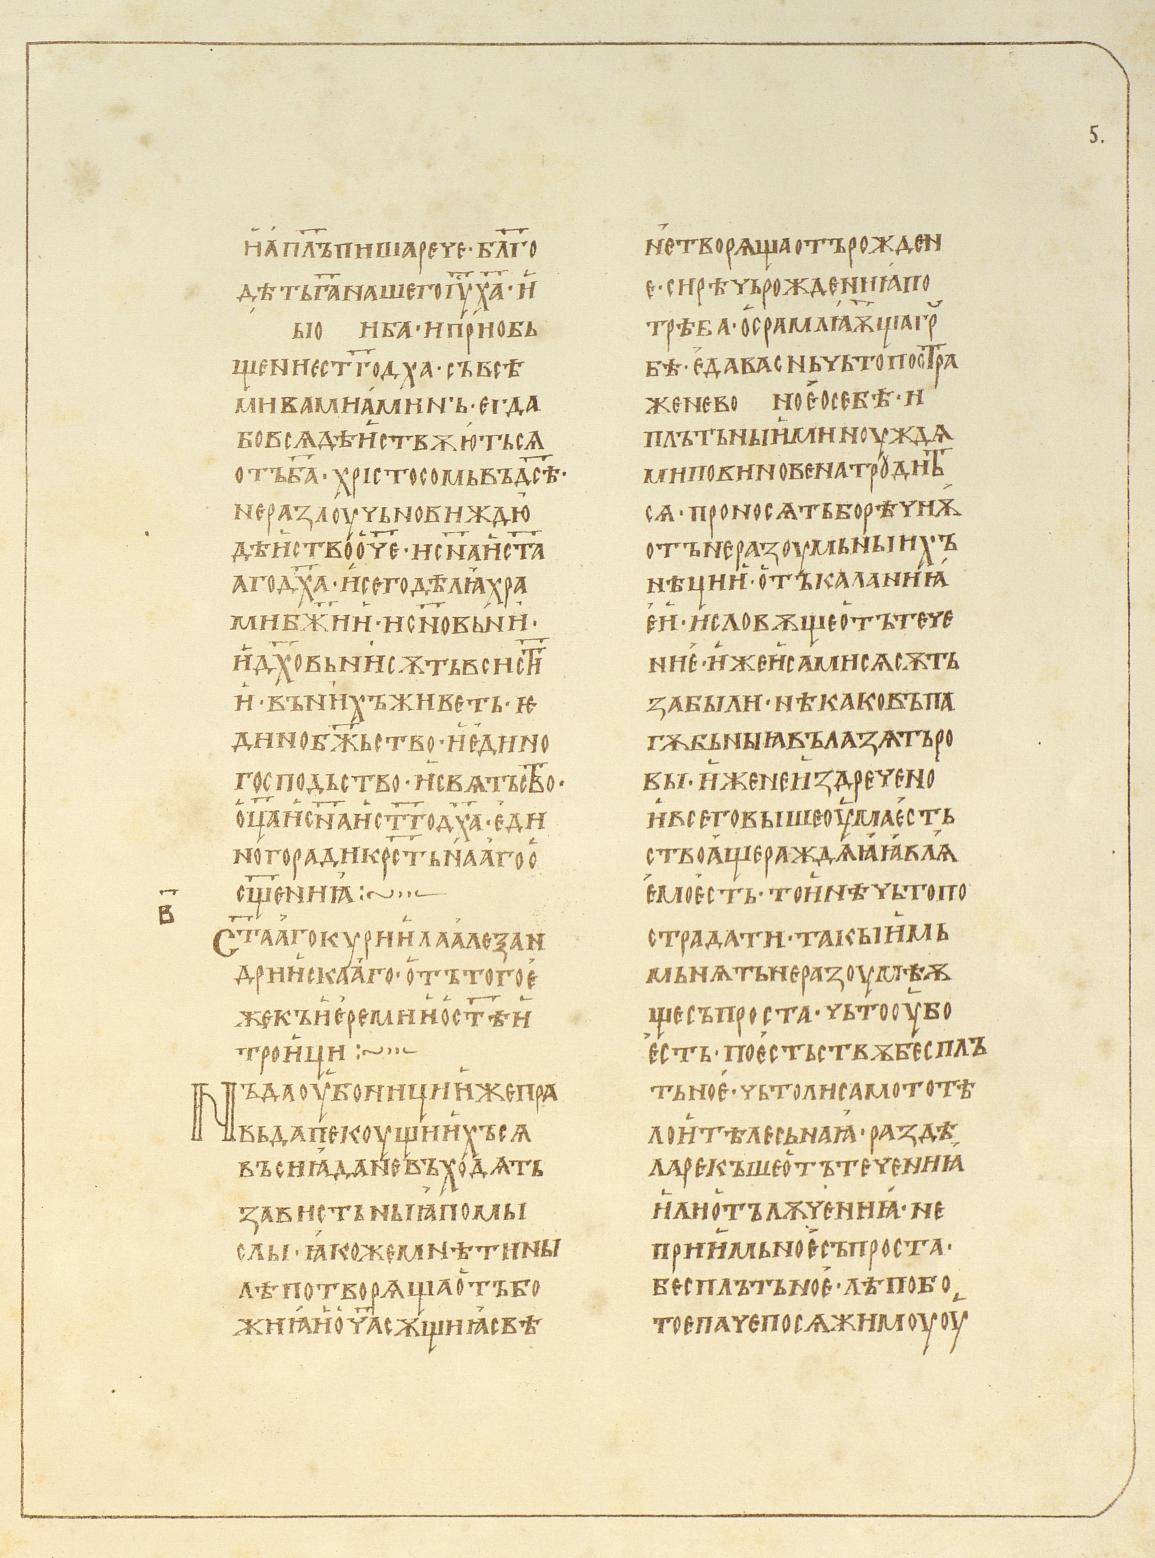 5.
и҆ а҆ п҃лъ пишѧ рече · бл҃го
дѣть г҃а нашего і҃у х҃а · и҆
ью и б҃а · и прио҆бь
щение ст҃го дх҃а · съ всѣ
ми вами а҆минъ · егда
бо вся дѣиствѫютьсѧ
отъ б҃а · хрістосомь въ д҃сѣ ·
неразлоучьно виждю
дѣиство о҃че · и с҃на и ст҃а
аго дх҃а · и҆ сего дѣлꙗ хра
ми бж҃ии · и с҃новьни ·
и҆ дх҃овьни сѫть вси ст҃и
и · въ нихъ живеть · ѥ
дино бж҃ьство · и҆ едино
господьство · и҆ свѧтьство ·
о҃ца и с҃на и ст҃го дх҃а · еди
ного ради крⷭтьнааго о
сщ҃ениꙗ :~
в҃
Ст҃ааго курила алеѯан
дриискааго · отъ того е
же къ иеремии о ст҃ѣи
троици :~
Нъда оубо ници иже пра
вьда пекоущиихъсѧ
въсниꙗданевъходѧть
завистьныꙗ помы
слы · ꙗкоже мнѣти ны
лѣпо творѧща отъ бо
жиꙗ и о҃ча сѫщиꙗ свѣ
не творѧща отъ рожден
е · сирѣчь рождениꙗ по
трѣба · о҆срамлꙗѭща гр
бѣ · еда васнь чьто постра
жене во ное о себѣ · и
плътьныими ноуждѧ
ми повиновена трудить
сѧ · проносѧть бо рѣчиѭ
отъ неразоумьныихъ
нѣции · отъкаланиꙗ
еи · и словѫще отъ тече
ние · иже и сами сѧ сѫть
забыли · нѣ како въ па
гѫбьныꙗ вълазѧть ро
вы · иже неиздречено
и вьсего выше оума есть
ство аще раждаꙗ ꙗвлѧ
емо есть · то и нѣчьто по
страдати · такыимь
мьнѧть неразоумѣѭ
ще съпроста · чьто оубо
есть · по естьствѫ бесплъ
тьное · чьто ли само то тѣ
ло и тѣлесьнаꙗ · раздѣ
ла рекъше отъ течениꙗ
или отъ лѫчениꙗ · не
приимьно е съпроста ·
бесплътьное · лѣпо бо
тое паче посѧжимоу оу